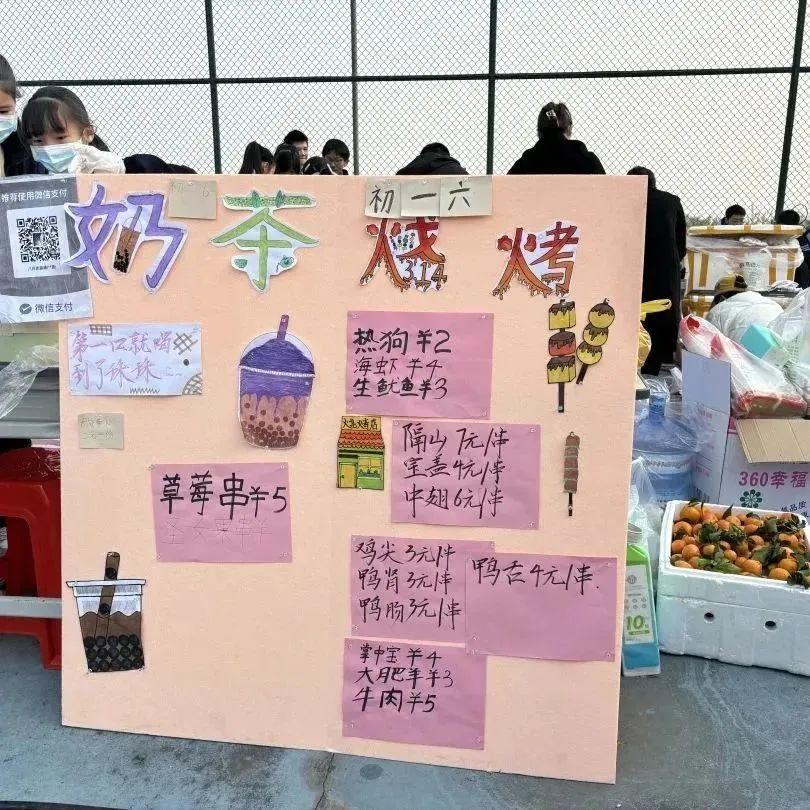 推荐使用微信支付
微信支付
奶茶
初一六
烧烤
3.14
第一口就喝
到了珠珠
热狗¥2
海虾¥4
生鱿鱼¥3
烧烤店
隔山7元/串
宝盖4元/串
中翅6元/串
草莓串¥5
圣女果串¥
鸡尖3元/串
鸭肾3元/串
鸭肠3元/串
鸭舌4元/串.
掌中宝¥4
大肥羊¥3
牛肉¥5
360幸福
10